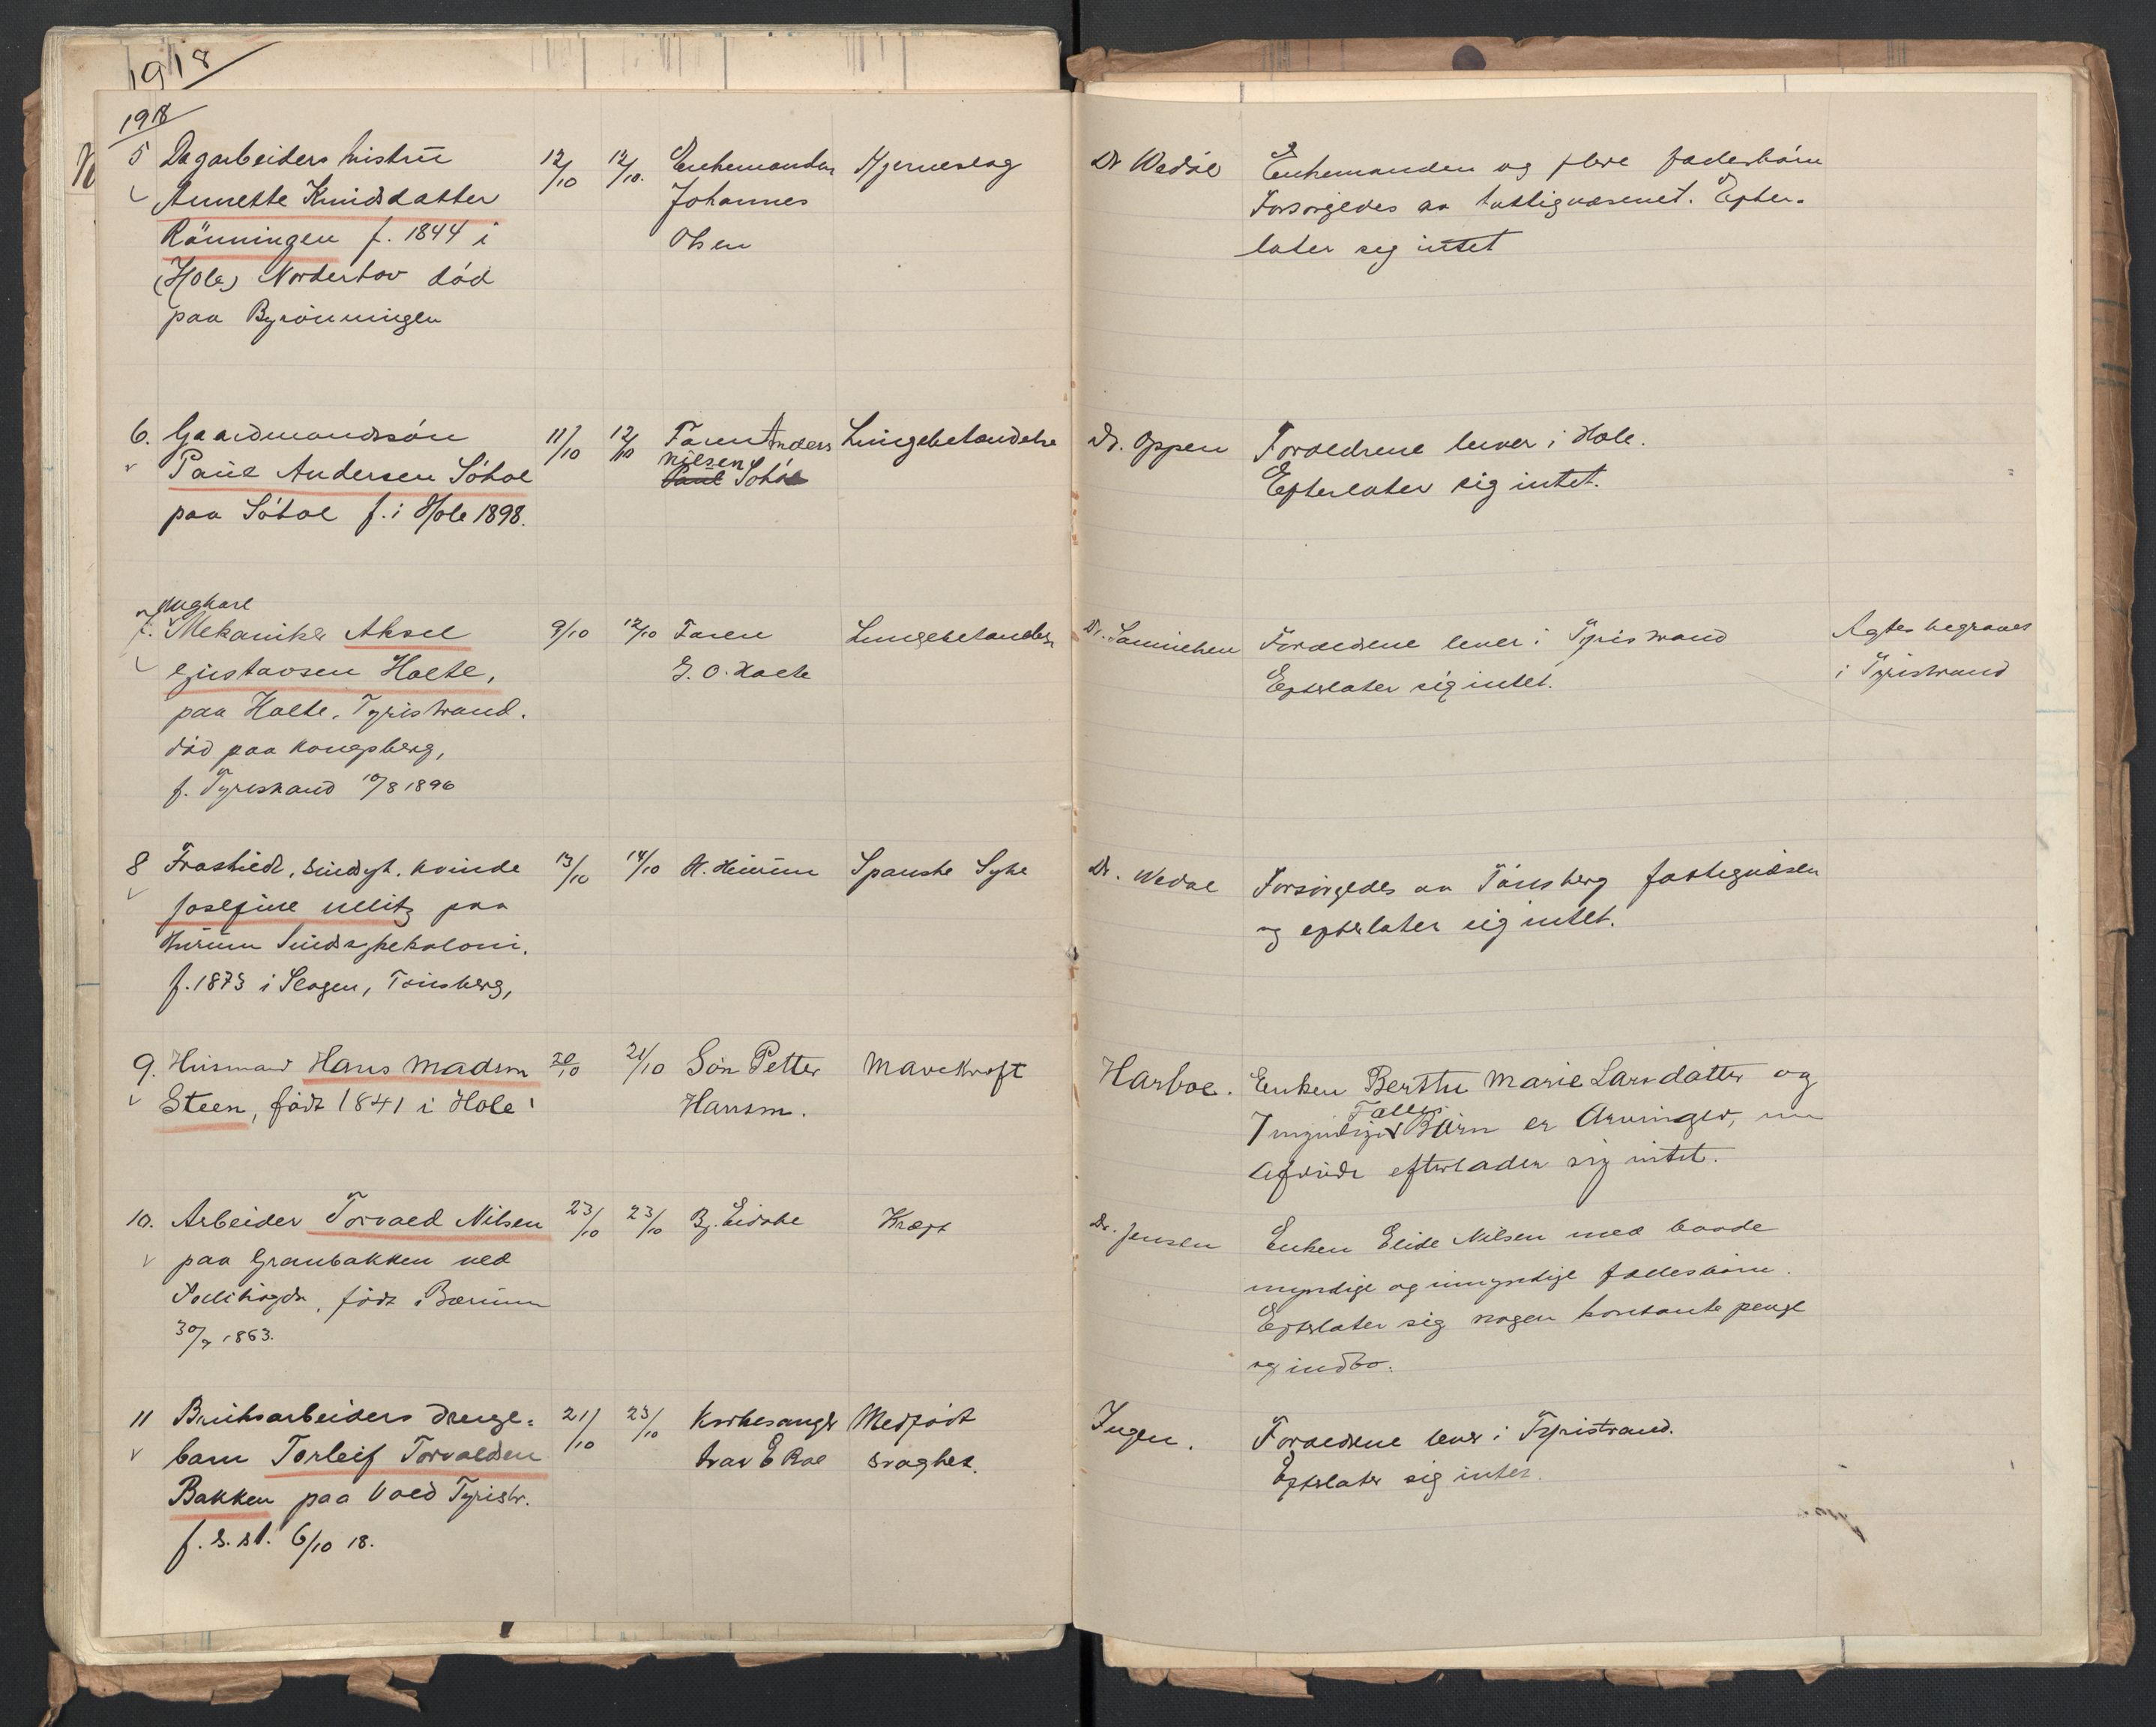 1918
1918
5 Dagarbeiders hustru 12/10 12/10. Enkemanden Hjerneslag Dr Wedøe Enkemanden og flere fællesbørn
Annette Knudsdatter Johannes Forsørgedes av fattigvæsenet. Efter-
Rönningen f. 1844 i Olsen later seg intet
(Hole) Norderhov död
paa Byrönningen
6. Gaardmandssön 11/10 12/10 Faren Anders Lungebetændelse Dr. Oppen Forældrene lever i Hole.
Paul Andersen Söhol Nilsen Efterlater sig intet.
paa Söhol f. i Hole 1898. Paul Söhol
ungkarl
7. Mekaniker Aksel 9/10 12/10 Faren Lungebetændelse Dr. Forældrene lever i Tyristrand Agtes begravet
Gustavsen Holte, G. O. Holte Efterlater sig intet. i Tyristrand
paa Holte, Tyristrand.
död paa Kongsberg,
f. Tyristrand 10/8 1896
8 Fraskildt, sindsyk. kvinde 13/10 14/10 H. Hurum Spanske Syke Dr. Wedøe Forsörgedes av Tönsberg fattigvæsen
Josefine Mellitz paa og efterlater sig intet.
Hurum Sindsykekoloni.
f. 1873 i Slagen, Tönsberg,
9. Husmand Hans Madsen 20/10 21/10 Sön Petter Mavekræft Harboe. Enken Berthe Marie Larsdatter og
Steen, födt 1841 i Hole Hansen. 7 myndige Fælles Börn er Arvinger,
Afdøde efterlader sig intet.
10. Arbeider Torvald Nilsen 23/10 23/10 Bj. Kræft Dr. Jensen Enken Elide Nilsen med baade
paa Granbakken ved myndige og umyndige fællesbörn.
Sollihøgda, födt i Bærum Efterlater sig nogen kontante penge
30/7 1863. og indbo.
11 Bruksarbeiders drenge- 21/10 23/10 Kirkesanger Medfödt Ingen. Forældrene lever i Tyristrand.
barn Torleif Torvaldsen Ivar E Roe svaghet. Efterlater sig intet.
Bakken paa Vold Tyristr.
f. s. st. 6/10 18.